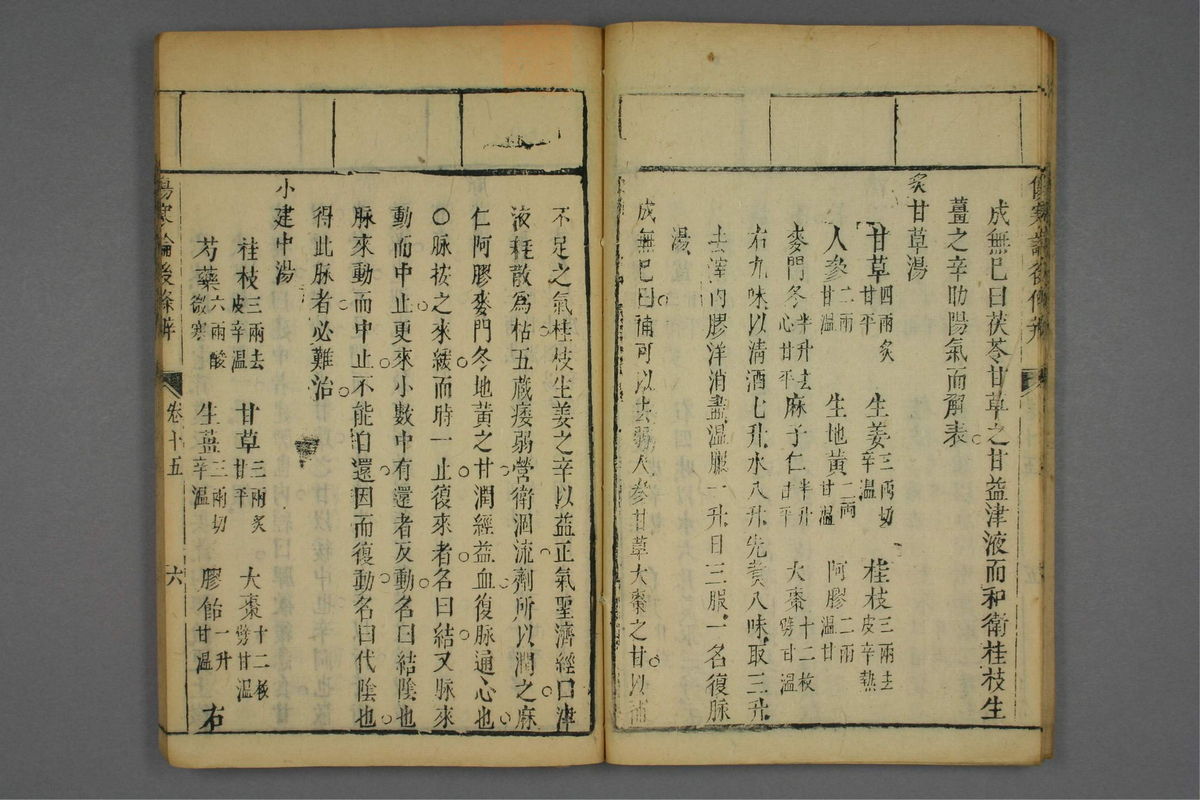 成無已曰茯苓甘草之甘益津液而和衛桂枝生
薑之辛助陽氣而解表
炙甘草湯
甘草四兩炙甘平 生姜三兩切辛溫 桂枝三兩去皮辛熱
人參二兩甘溫 生地黃二兩甘溫 阿膠二兩溫甘
麥門冬半升去心甘平 麻子仁半升甘平 大棗十二枚劈甘溫
右九味以清酒七升水八升先煑八味取三升
去滓內膠洋消盡溫服一升日三服一名復脉
湯
成無已曰補可以去弱人參甘草大棗之甘以補
不足之氣桂枝生姜之辛以益正氣聖濟經曰津
液耗散爲枯五藏痿弱營衛涸流劑所以潤之麻
仁阿膠麥門冬地黃之甘潤經益血復脉通心也
○脉按之來緩而時一止復來者名曰結又脉來
動而中止更來小數中有還者反動名曰結陰也
脉來動而中止不能自還因而復動名曰代陰也
得此脉者必難治
小建中湯
桂枝三兩去皮辛溫 甘草三兩炙甘平 大棗十二枚劈甘溫
芍藥六兩酸微寒 生薑三兩切辛溫 膠飴一升甘溫 右
傷寒論後條辨 卷十五 六